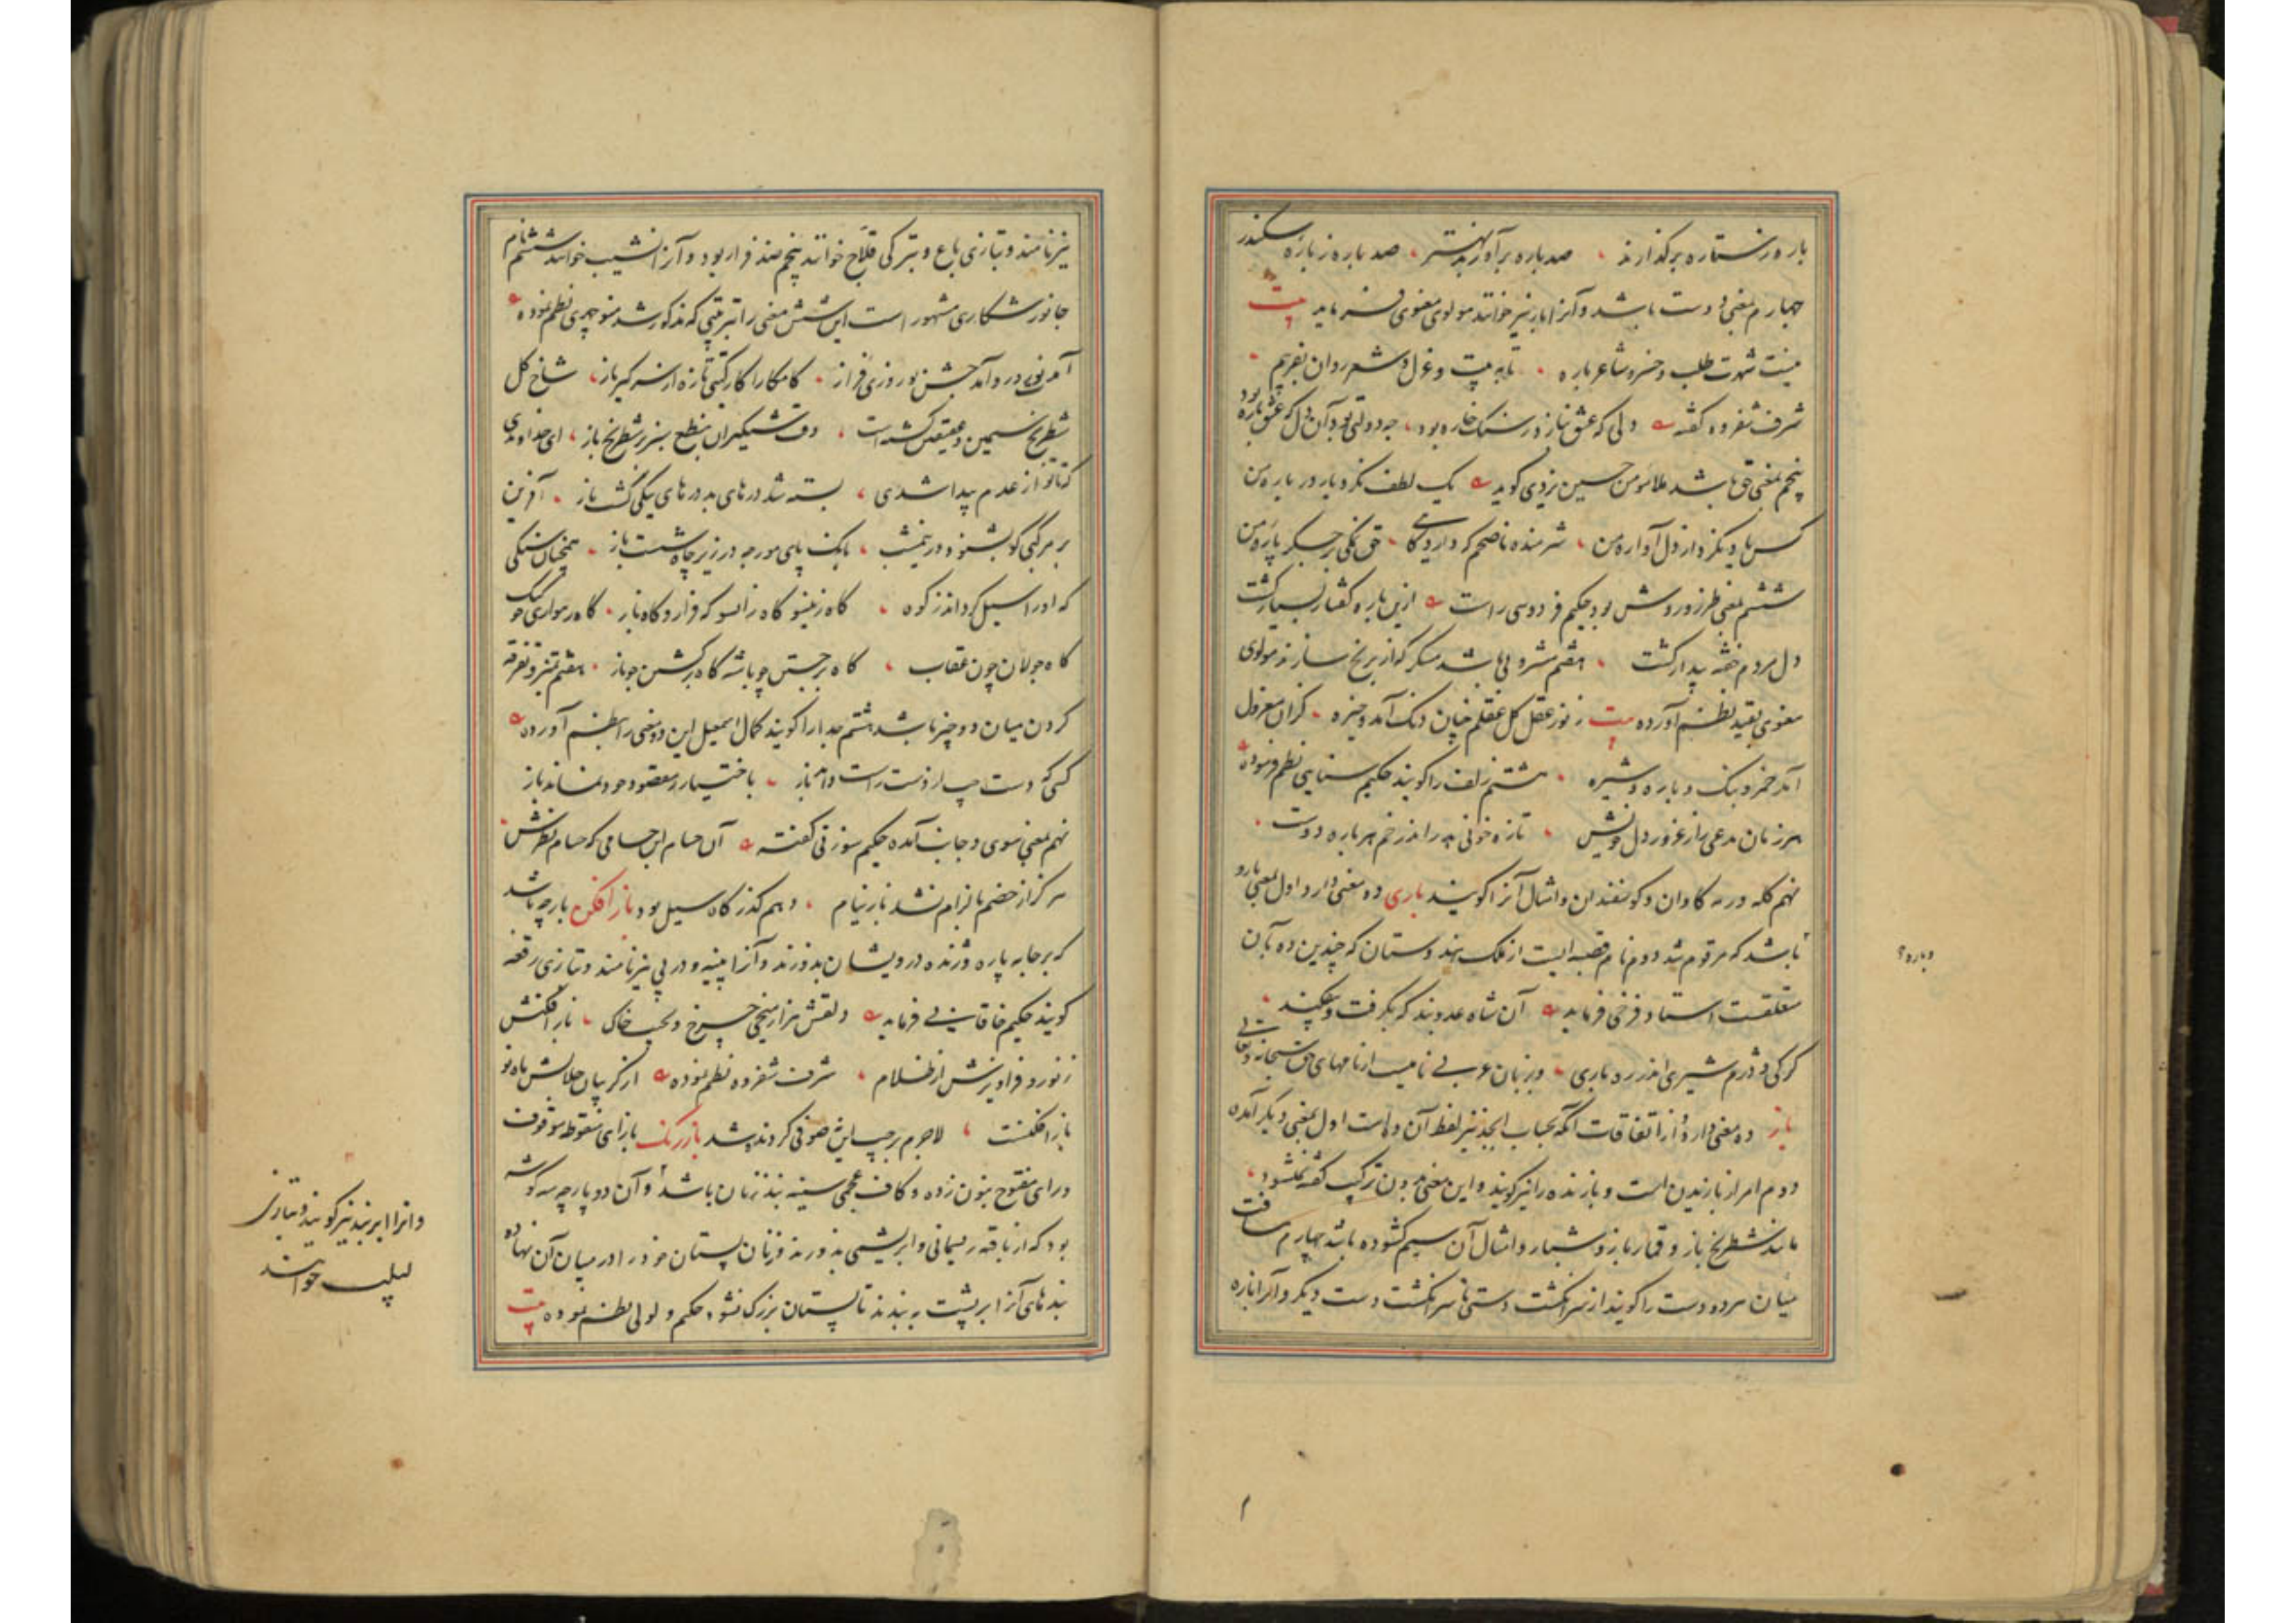 بار ور ستاره برگذارند صد باره برآورند بهتر صد باره ز باره سکندر
چهارم بمعنی دوست باشد و آنرا یار نیز خوانند مولوی معنوی فرماید بیت
شهوت طلب و خسرو شاعر باره تا به بیت و غزل و شعر روان بفریبم
شرف شفروه گفته دلی که عشق نبازد ز سنگ خاره بود چه دولتی بود آن دل که عشق باره بود
پنجم بمعنی حق باشد ملا مؤمن حسین یزدی گوید یک لطف نکرد یار در باره من
کس یاد نکرد از دل آواره من شرمنده ناصحم که دارد گاهی حق نمکی بر جگر پاره من
ششم بمعنی طرز و روش بود حکیم فردوسی راست ازین باره گفتار بسیار گشت
دل مردم خفته بیدار گشت هفتم مشروبی باشد مسکر که از برنج سازند مولوی
معنوی بقید نظم آورده بیت ز نور عقل کل عقلم چنان دنگ آمد و خیره کزان معزول
آمد خمر و بنگ و باره و شیره هشتم زلف را گویند حکیم سنایی نظم فرموده
هر زمان مدعی را ز غرور دل خویش تازه خونی بد اندر خم هر باره دوست
نهم گله و رمه گاوان و گوسفندان و امثال آنرا گویند باری دو معنی دارد اول بمعنی بارو
باشد که مرقوم شد دوم نام قصبه ایست از ملک هندوستان که چندین ده بآن
متعلقست استاد فرخی فرماید آن شاه عدو بند که بگرفت و بیفکند
کرگی و دژم شیری اندر ره باری و بزبان عربی نامیست از نامهای حق سبحانه و تعالی
باز ده معنی دارد و از اتفاقات آنکه بحساب ابجد نیز لفظ آن ده است اول بمعنی دیگر آمده
دوم امر از بازیدن است و بازنده را نیز گویند و این معنی بدون ترکیب گفته نشود
مانند شطرنج باز و قمار باز و شبباز و امثال آن سیم گشوده باشد چهارم مسافت
میان هر دو دست را گویند از سر انگشت دستی تا سر انگشت دست دیگر و آنرا باره
دباره؟
نیز نامند و بتازی باع و بترکی قلاج خوانند پنجم ضد فراز بود و آنرا نشیب خوانند ششم نام
جانور شکاری مشهور است این شش معنی را بترتیبی که مذکور شد منوچهری نظم نموده
آمد نوروز و آمد جشن نوروزی فراز کامکارا کار گیتی تازه از سر گیر باز شاخ گل
شطرنج سیمین و عقیقین گشته است وقت شبگیران بنطع سبزه شطرنج باز ای خداوندی
که تا تو از عدم پیدا شدی بسته شد درهای بد درهای نیکی گشت باز آفرین
بر مرکبی کو بشنود در نیمشب بانگ پای مورچه در زیر چاه شصت باز همچنان سنگی
که او را سیل گرداند ز کوه گاه زینسو گاه زانسو گه فراز و گاه باز گاه رهواری چو کبک
گاه جولان چون عقاب گاه برجستن چو باشه گاه برگشتن چو باز هفتم تمیز و تفرقه
کردن میان دو چیز باشد هشتم جدا را گویند کمال اسمعیل این دو معنی را بنظم آورده
کسی که دست چپ از دست راست داند باز باختیار ز مقصود خود نماند باز
نهم بمعنی سوی و جانب آمده حکیم سوزنی گفته آن حسام ابن حسامی که حسام نظرش
هرگز از خصم با الزام نشد باز نیام دهم گذرگاه سیل بود بازافکن پارچه باشد
که بر جامه پاره و ژنده درویشان بدوزند و آنرا پینه و درپی نیز نامند و بتازی رقعه
گویند حکیم خاقانی فرماید دلقش هزار میخی چرخ و بجیب خاک بازافکنش
ز نور و فراویزش از ظلام شرف شفروه نظم نموده از گریبان جلالش ماه نو
بازافکنست لاجرم بر جیب این صوفی گردنده شد بازرنگ بازای منقوطه موقوف
و رای مفتوح بنون زده و کاف عجمی سینه بند زنان باشد و آن دو پارچه سه گوشه
بود که از بافته ریسمانی و ابریشمی بدوزند و زنان پستان خود را در میان آن نهاده
بندهای آنرا بر پشت بندند تا پستان بزرگ نشود حکیم ولوالی نظم نموده بیت
و انرا ابر بند نیز گویند و بتازی
لبب خوانند